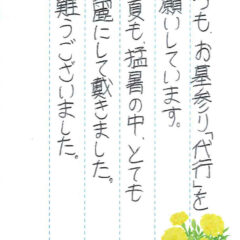 も、お墓参り「代行」を
願いしています。
夏も、猛暑の中、とても
麗にして戴きました。
難うございました。